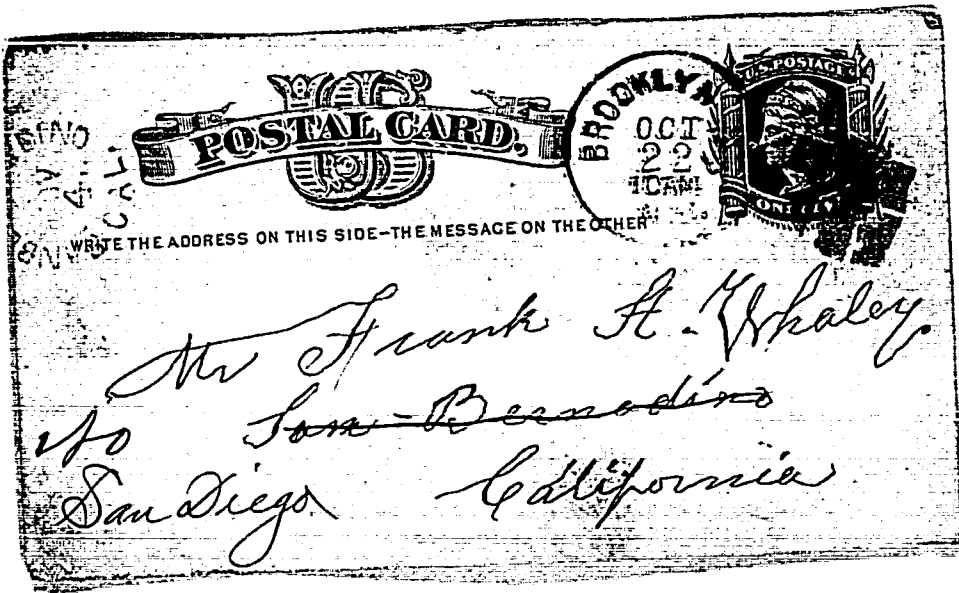 U.S. POSTAGE
POSTAL CARD.
BROOKLYN
OCT
22
10AM
NOV
4
CAL.
ONE CENT
WRITE THE ADDRESS ON THIS SIDE-THE MESSAGE ON THE OTHER
Mr Frank H. Whaley.
San-Bernadino
San Diego. California